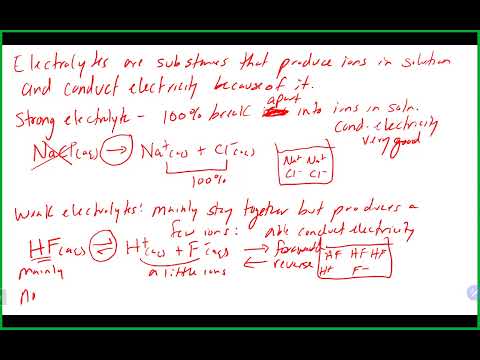 Electrolytes are substances that produce ions in solution
and conduct electricity because of it.
Strong electrolyte - 100% break apart into ions in soln.
cond. electricity
very good
NaCl(aq) → Na+(aq) + Cl-(aq)
100%
Na+ Na+
Cl- Cl-
Weak electrolytes: mainly stay together but produces a
few ions: able conduct electricity
HF(aq) ⇌ H+(aq) + F-(aq) → forward
← reverse
mainly
a little ions
HF HF HF
H+ F-